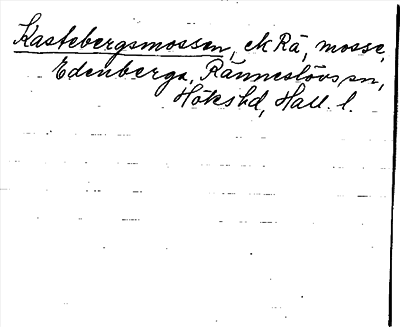 Kastebergsmossen, N Rä, mosse,
Edenberga, Ränneslövs sn,
Höks hd, Hall. l.